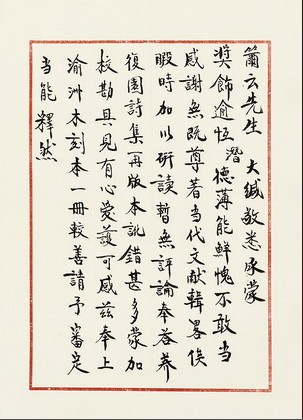 箫云先生 大缄敬悉承蒙
奖飾逾恒潜德薄能鮮愧不敢当
感謝無既尊著当代文献輯畧俟
暇時加以研讀暫無評論奉答养
復園詩集再版本訛錯甚多蒙加
校勘具見有心爱護可感兹奉上
渝洲木刻本一冊較善請予審定
当能釋然